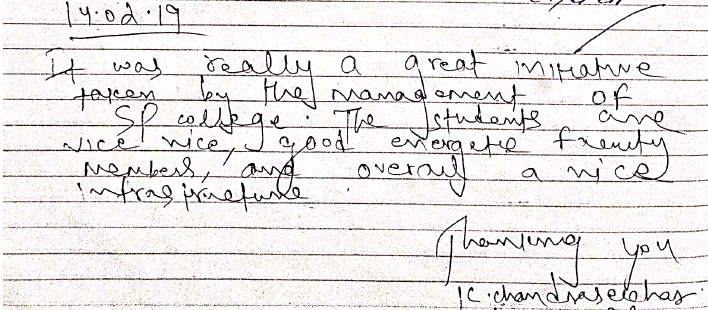 14.02.19
It was really a great initiative
taken by the management of
SP college. The students are
nice nice, good energetic faculty
members, and overall a nice
infrastructure
Thanking you
K. chandrasekhar.